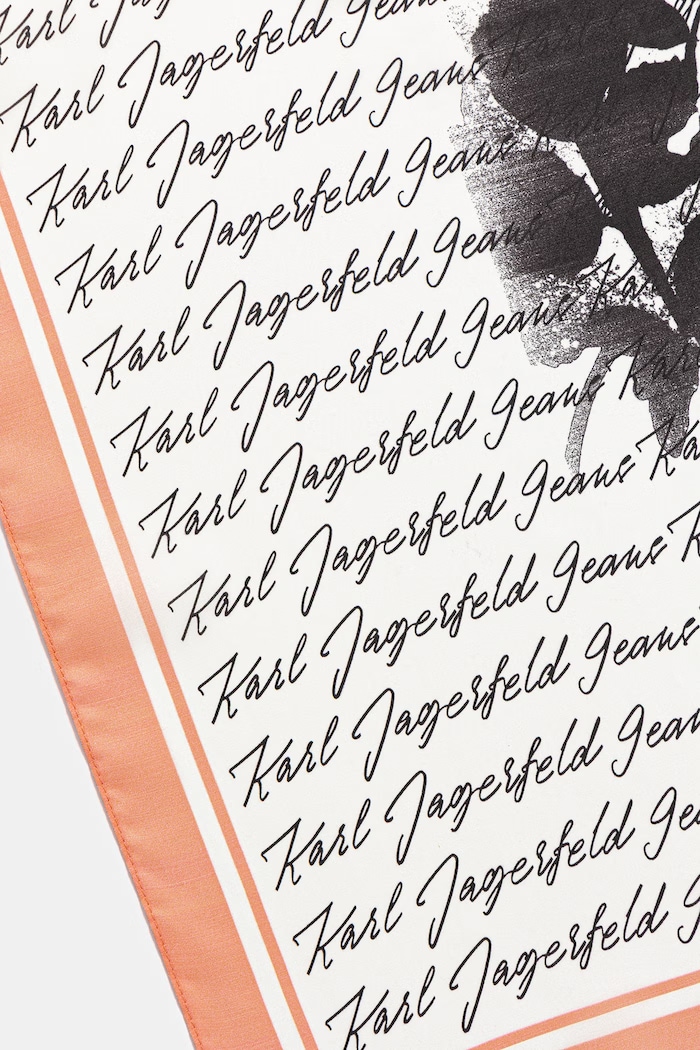 Karl
Karl Lagerfeld Jeans
Karl Lagerfeld Jeans Karl
Karl Lagerfeld Jeans Karl
Karl Lagerfeld Jeans
Karl Lagerfeld Jeans Karl
Karl Lagerfeld Jeans Karl
Karl Lagerfeld Jeans Ka
Karl Lagerfeld Jeans K
Karl Lagerfeld Jeans
Karl Lagerfeld Jean
Karl Lagerfeld Je
Karl Lagerfeld J